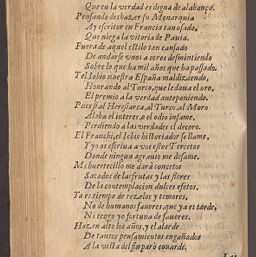 Que en la verdad es digna de alabança.
Pensando deshazer su Monarquia
Ay escritor en Francia tan osado,
Que niega la vitoria de Pauia.
Fuera de aquel estilo tan cansado
De andarse vnos a otros desmintiendo
Sobre lo que ha mil años que ha passado.
Y el Iobio nuestra España maldiziendo,
Honrando al Turco, que le daua el oro,
El premio a la verdad anteponiendo.
Pues si al Heresiarca, al Turco, al Moro
Alaba el interes, o el odio infame,
Perdiendo a las verdades el decoro.
El Franchi, el Iobio historiador se llame,
Y yo os escriua a vos estos Tercetos
Donde ningun agrauio me disfame.
Mi huertecillo me dará concetos
Sacados de las frutas y las flores
De la contemplacion dulces efetos.
Ya es tiempo de rezelos y temores,
No de humanos fauores, que ya es tarde,
Ni tengo yo fortuna de fauores.
Hazen alto los años, y el alarde
De tantos pensamientos engañados
A la vista del fin paró couarde.